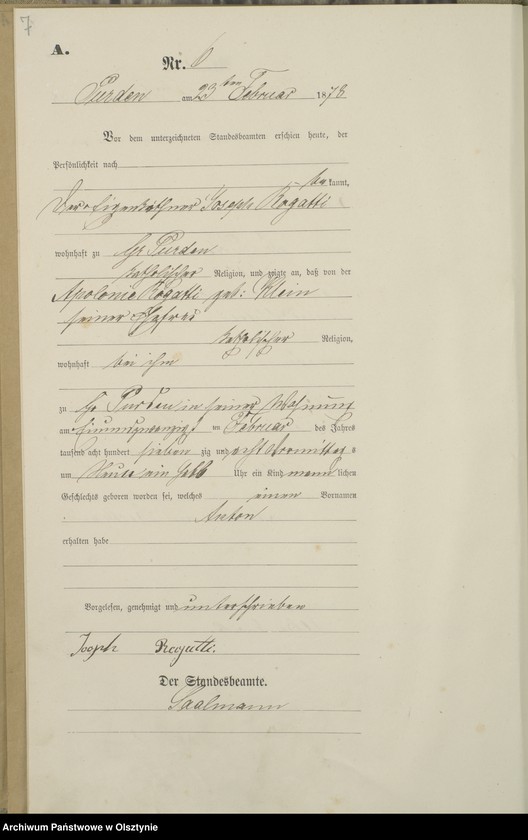 7
A.
Nr. 6
Purden am 23ten Februar 1878
Vor dem unterzeichneten Standesbeamten erschien heute, der
Persönlichkeit nach
be kannt,
der Eigenkäthner Joseph Rogatti
wohnhaft zu Gr Purden
katholischer Religion, und zeigte an, daß von der
Apolonia Rogatti geb: Klein
seiner Ehefrau
katholischer Religion,
wohnhaft bei ihm
zu Gr Purden in seiner Wohnung
am einundzwanzigs im Februar des Jahres
tausend acht hundert sieben zig und acht Vormittags
um Neun ein halb Uhr ein Kind männ lichen
Geschlechts geboren worden sei, welches einen Vornamen
Anton
erhalten habe
Vorgelesen, genehmigt und unterschrieben
Joseph Rogatti.
Der Standesbeamte.
Saalmann
Archiwum Państwowe w Olsztynie